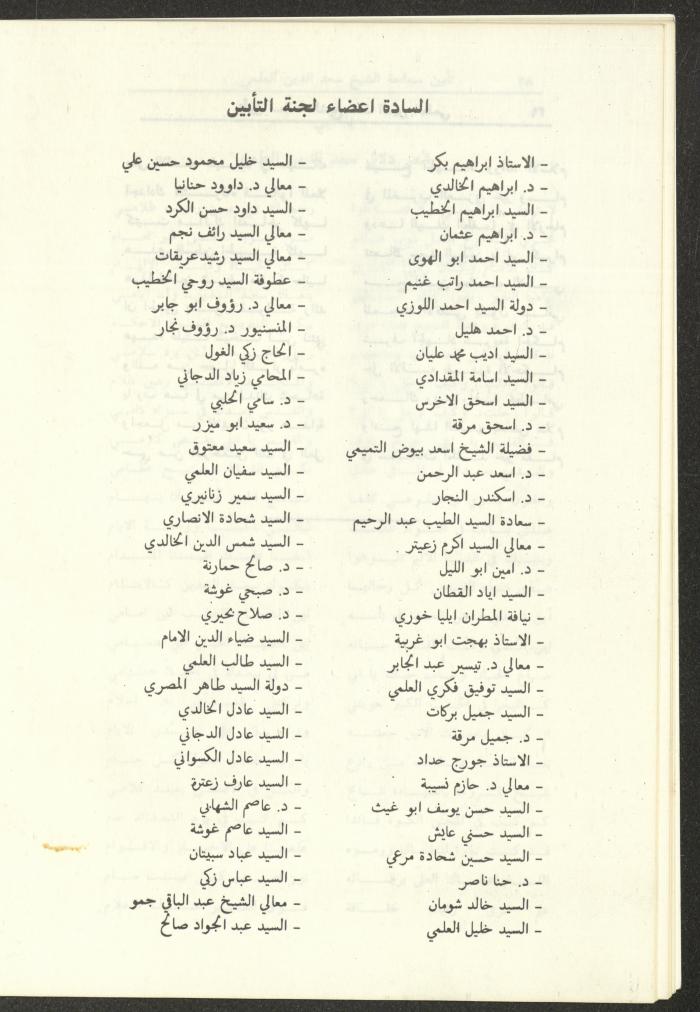 السادة اعضاء لجنة التأبين
- الاستاذ ابراهيم بكر
- د. ابراهيم الخالدي
- السيد ابراهيم الخطيب
- د. ابراهيم عثمان
- السيد احمد ابو الهوى
- السيد احمد راتب غنيم
- دولة السيد احمد اللوزي
- د. احمد هليل
- السيد اديب محمد عليان
- السيد اسامة المقدادي
- السيد اسحق الاخرس
- د. اسحق مرقة
- فضيلة الشيخ اسعد بيوض التميمي
- د. اسعد عبد الرحمن
- د. اسكندر النجار
- سعادة السيد الطيب عبد الرحيم
- معالي السيد اكرم زعيتر
- د. امين ابو الليل
- السيد اياد القطان
- نيافة المطران ايليا خوري
- الاستاذ بهجت ابو غربية
- معالي د. تيسير عبد الجابر
- السيد توفيق فكري العلمي
- السيد جميل بركات
- د. جميل مرقة
- الاستاذ جورج حداد
- معالي د. حازم نسيبة
- السيد حسن يوسف ابو غيث
- السيد حسني عايش
- السيد حسين شحادة مرعي
- د. حنا ناصر
- السيد خالد شومان
- السيد خليل العلمي
- السيد خليل محمود حسين علي
- معالي د. داوود حنانيا
- السيد داود حسن الكرد
- معالي السيد رائف نجم
- معالي السيد رشيد عريقات
- عطوفة السيد روحي الخطيب
- معالي د. رؤوف ابو جابر
- المنسنيور د. رؤوف نجار
- الحاج زكي الغول
- المحامي زياد الدجاني
- د. سامي الحلبي
- د. سعيد ابو ميزر
- السيد سعيد معتوق
- السيد سفيان العلمي
- السيد سمير زنانيري
- السيد شحادة الانصاري
- السيد شمس الدين الخالدي
- د. صالح حمارنة
- د. صبحي غوشة
- د. صلاح بحيري
- السيد ضياء الدين الامام
- السيد طالب العلمي
- دولة السيد طاهر المصري
- السيد عادل الخالدي
- السيد عادل الدجاني
- السيد عادل الكسواني
- السيد عارف زعترة
- د. عاصم الشهابي
- السيد عاصم غوشة
- السيد عباد سبيتان
- السيد عباس زكي
- معالي الشيخ عبد الباقي جمو
- السيد عبد الجواد صالح